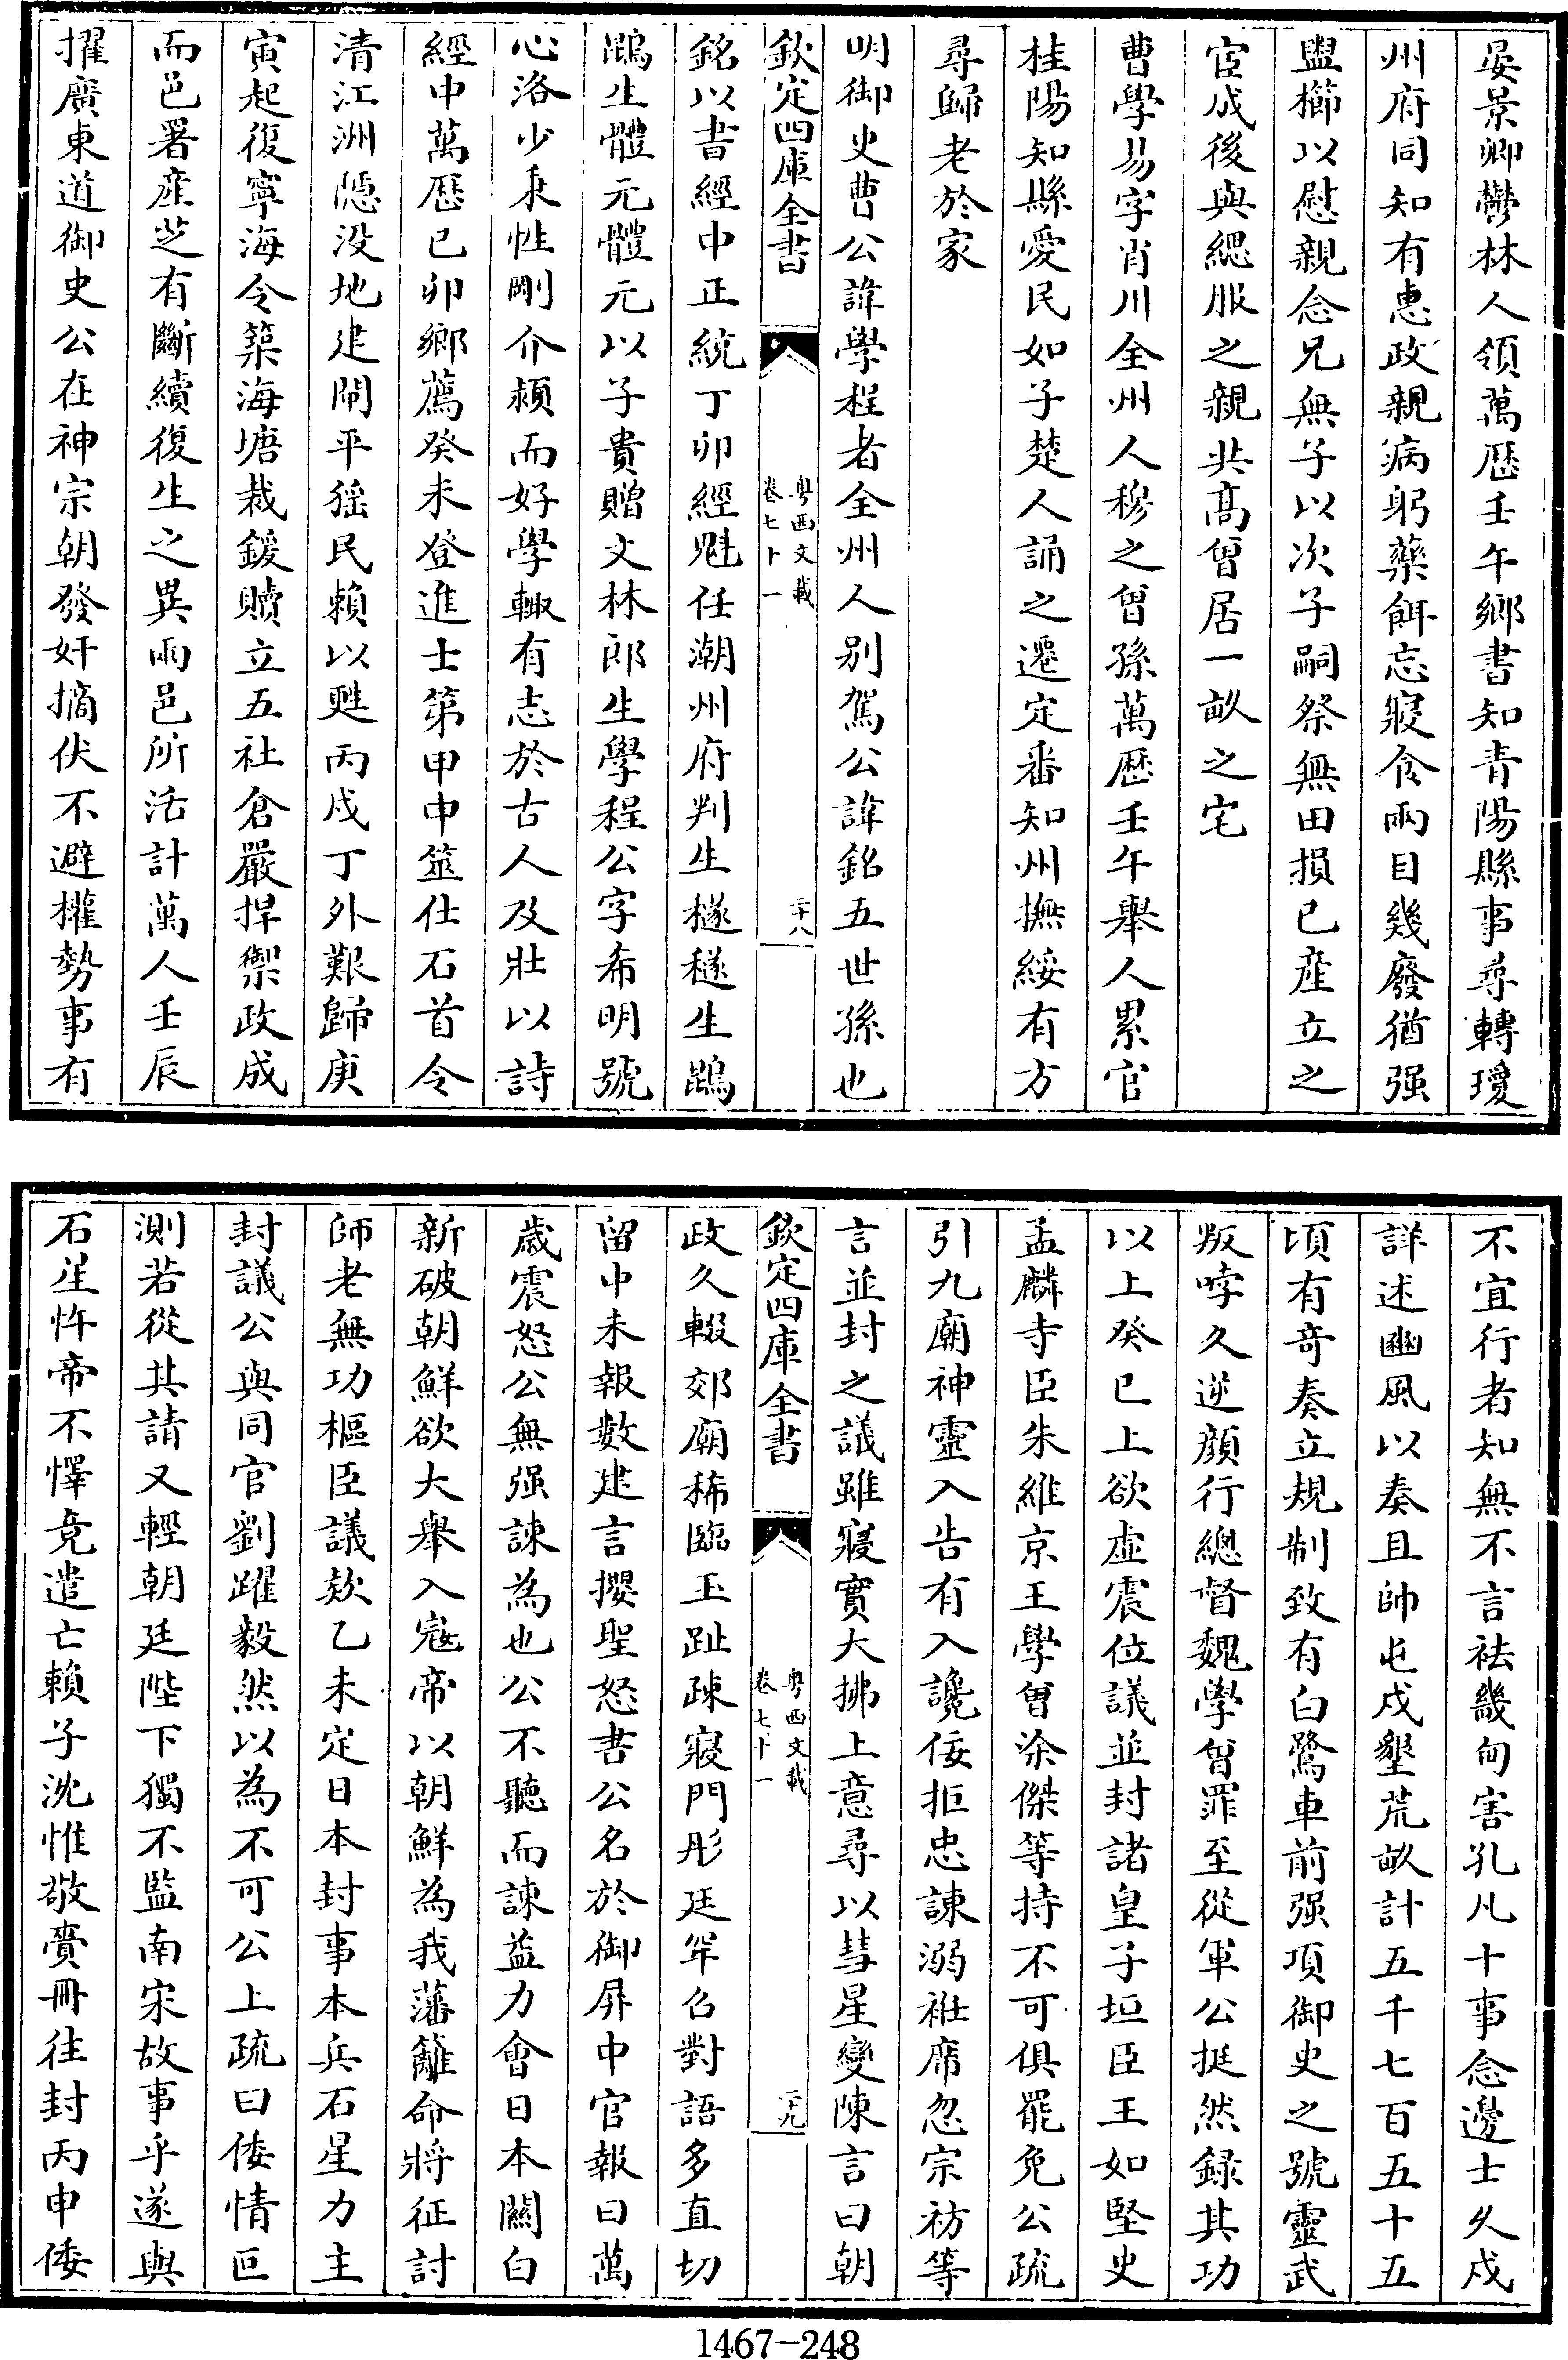 晏景卿鬱林人領萬厯壬午鄉書知青陽縣事尋轉瓊
州府同知有惠政親病躬藥餌忘寢食兩目幾廢猶强
盥櫛以慰親念兄無子以次子嗣祭無田損已產立之
宦成後與緦服之親共髙曾居一畝之宅
曹學易字肖川全州人穆之曾孫萬厯壬午舉人累官
桂陽知縣愛民如子楚人誦之遷定番知州撫綏有方
尋歸老於家
明御史曹公諱學程者全州人别駕公諱銘五世孫也
欽定四庫全書
粤西文載
卷七十一
二十八
銘以書經中正統丁卯經魁任潮州府判生檖檖生鵾
鵾生體元體元以子貴贈文林郎生學程公字希明號
心洛少秉性剛介頴而好學輙有志於古人及壯以詩
經中萬厯已卯鄉薦癸未登進士第甲申筮仕石首令
清江洲隱没地建閘平猺民賴以甦丙戍丁外艱歸庚
寅起復寧海令築海塘裁鍰贖立五社倉嚴捍禦政成
而邑署產芝有斷續復生之異兩邑所活計萬人壬辰
擢廣東道御史公在神宗朝發奸摘伏不避權勢事有
不宜行者知無不言袪畿甸害孔凡十事念邊士久戍
詳述豳風以奏且帥屯戍墾荒畝計五千七百五十五
頃有竒奏立規制致有白鷺車前强項御史之號靈武
叛哱久逆顔行總督魏學曾罪至從軍公挺然録其功
以上癸巳上欲虚震位議並封諸皇子垣臣王如堅史
孟麟寺臣朱維京王學曾涂傑等持不可俱罷免公疏
引九廟神靈入告有入讒佞拒忠諫溺袵席忽宗祊等
言並封之議雖寢實大拂上意尋以彗星變陳言曰朝
欽定四庫全書
粤西文載
卷七十一
二十九
政久輟郊廟稀臨玉趾疎寢門彤廷罕召對語多直切
留中未報數建言攖聖怒書公名於御屏中官報曰萬
歳震怒公無强諫為也公不聽而諫益力會日本關白
新破朝鮮欲大舉入寇帝以朝鮮為我藩籬命將征討
師老無功樞臣議欵乙未定日本封事本兵石星力主
封議公與同官劉躍毅然以為不可公上疏曰倭情叵
測若從其請又輕朝廷陛下獨不監南宋故事乎遂與
石星忤帝不懌竟遣亡賴子沈惟敬賫冊往封丙申倭
1467-248